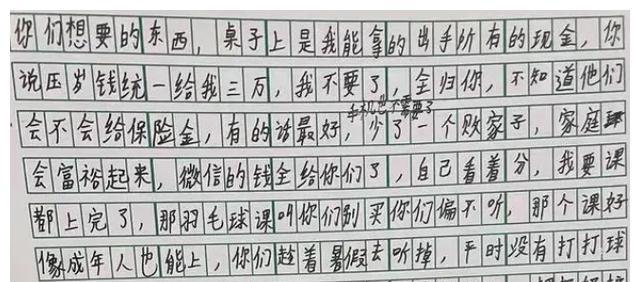 你们想要的东西，桌子上是我能拿的出手所有的现金，你
说压岁钱统一给我三万，我不要了，全归你，不知道他们
手机也不需要了
会不会给保险金，有的话最好，少了一个败家子，家庭
会富裕起来，微信的钱全给你们了，自己看着分，我要课
都上完了，那羽毛球课叫你们别买你们偏不听，那个课好
像成年人也能上，你们趁着暑假去听掉，平时没有打打球